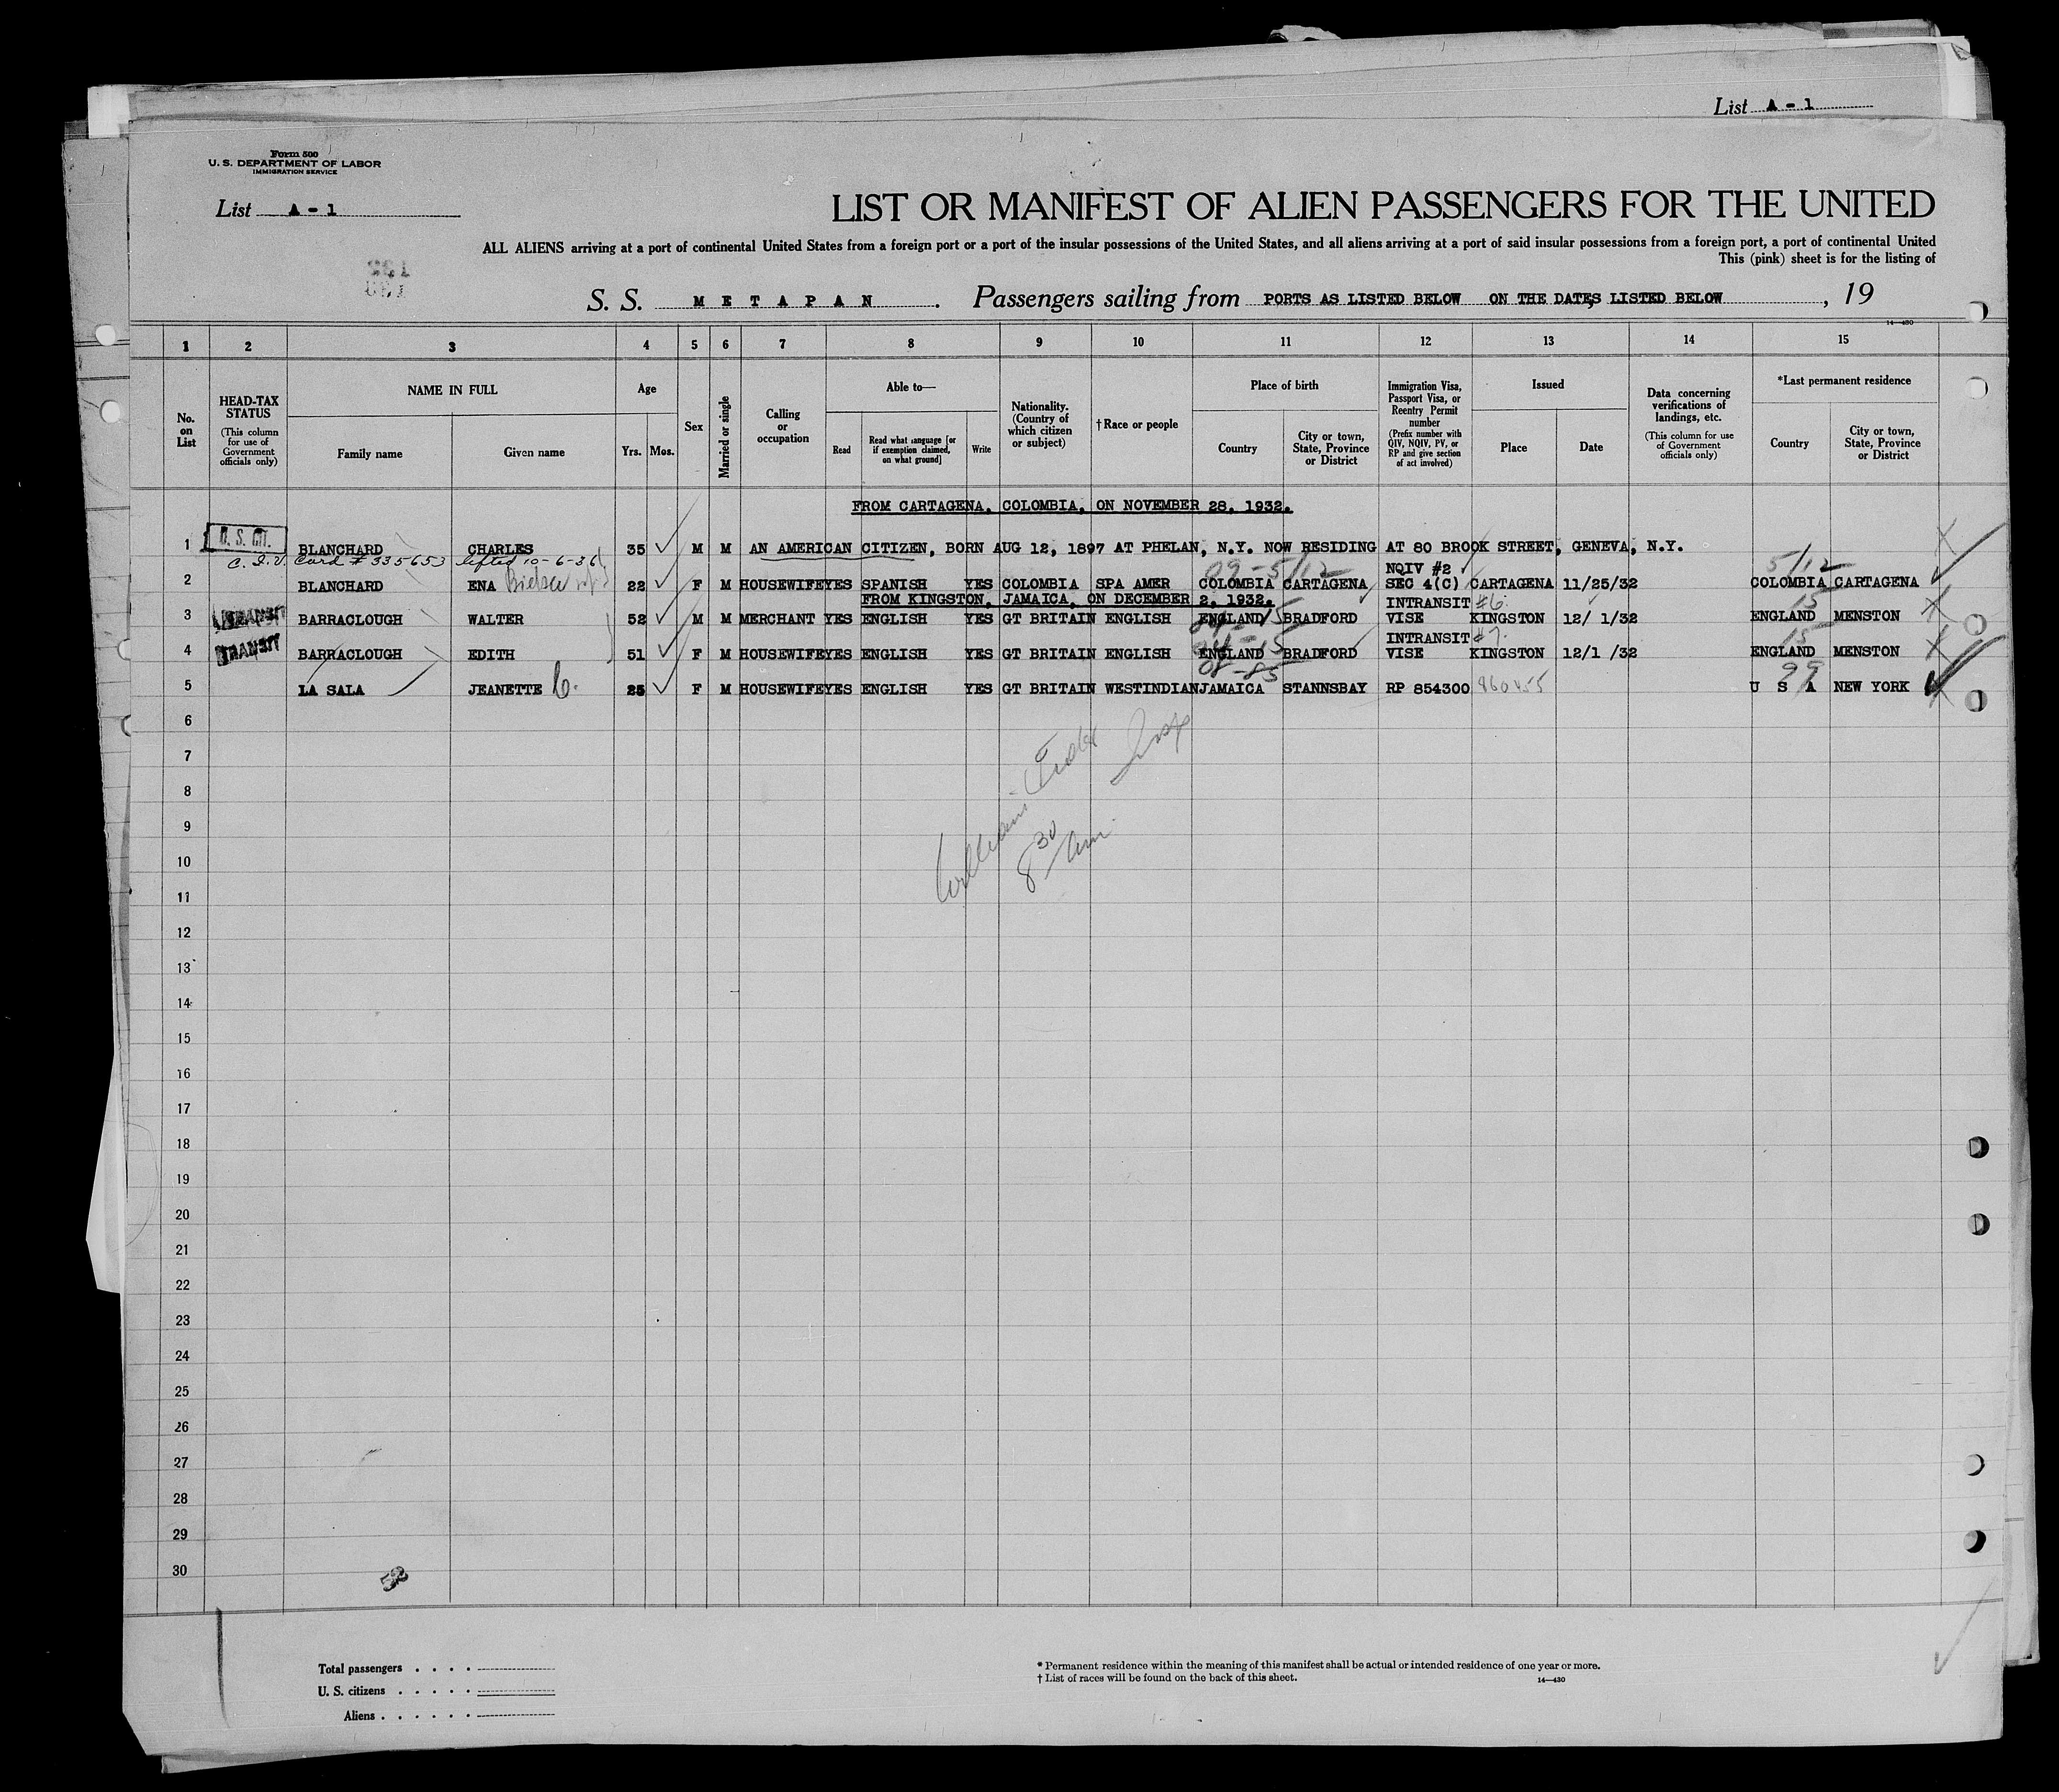 List A - 1
Form 500
U. S. DEPARTMENT OF LABOR
IMMIGRATION SERVICE
List A - 1
LIST OR MANIFEST OF ALIEN PASSENGERS FOR THE UNITED
ALL ALIENS arriving at a port of continental United States from a foreign port or a port of the insular possessions of the United States, and all aliens arriving at a port of said insular possessions from a foreign port, a port of continental United
This (pink) sheet is for the listing of
S. S. METAPAN. Passengers sailing from PORTS AS LISTED BELOW ON THE DATES LISTED BELOW, 19
14—430
1 2 3 4 5 6 7 8 9 10 11 12 13 14 15
No. on List
HEAD-TAX STATUS
(This column for use of Government officials only)
NAME IN FULL
Family name
Given name
Age
Yrs. Mos.
Sex
Married or single
Calling or occupation
Able to—
Read
Read what language [or if exemption claimed, on what ground]
Write
Nationality. (Country of which citizen or subject)
†Race or people
Place of birth
Country
City or town, State, Province or District
Immigration Visa, Passport Visa, or Reentry Permit number
(Prefix number with QIV, NQIV, PV, or RP and give section of act involved)
Issued
Place
Date
Data concerning verifications of landings, etc.
(This column for use of Government officials only)
*Last permanent residence
Country
City or town, State, Province or District
FROM CARTAGENA, COLOMBIA, ON NOVEMBER 28, 1932.
1 U. S. CIT. BLANCHARD CHARLES 35 M M AN AMERICAN CITIZEN, BORN AUG 12, 1897 AT PHELAN, N.Y. NOW RESIDING AT 80 BROOK STREET, GENEVA, N.Y.
C. I. V. Card # 335653 lifted 10-6-36
09-5/12 NQIV #2 5/12
2 BLANCHARD ENA 22 F M HOUSEWIFE YES SPANISH YES COLOMBIA SPA AMER COLOMBIA CARTAGENA SEC 4(C) CARTAGENA 11/25/32 COLOMBIA CARTAGENA
FROM KINGSTON, JAMAICA, ON DECEMBER 2, 1932.
INTRANSIT #6 15
3 TRANSIT BARRACLOUGH WALTER 52 M M MERCHANT YES ENGLISH YES GT BRITAIN ENGLISH ENGLAND BRADFORD VISE KINGSTON 12/ 1/32 ENGLAND MENSTON
INTRANSIT #7 15
4 TRANSIT BARRACLOUGH EDITH 51 F M HOUSEWIFE YES ENGLISH YES GT BRITAIN ENGLISH ENGLAND BRADFORD VISE KINGSTON 12/1 /32 ENGLAND MENSTON
08-85 99
5 LA SALA JEANETTE 25 F M HOUSEWIFE YES ENGLISH YES GT BRITAIN WESTINDIAN JAMAICA STANNSBAY RP 854300 860455 U S A NEW YORK
6
7
8
9
10
11
12
13
14
15
16
17
18
19
20
21
22
23
24
25
26
27
28
29
30
William
8 30
52
Total passengers
U. S. citizens
Aliens
* Permanent residence within the meaning of this manifest shall be actual or intended residence of one year or more.
† List of races will be found on the back of this sheet.
14—430